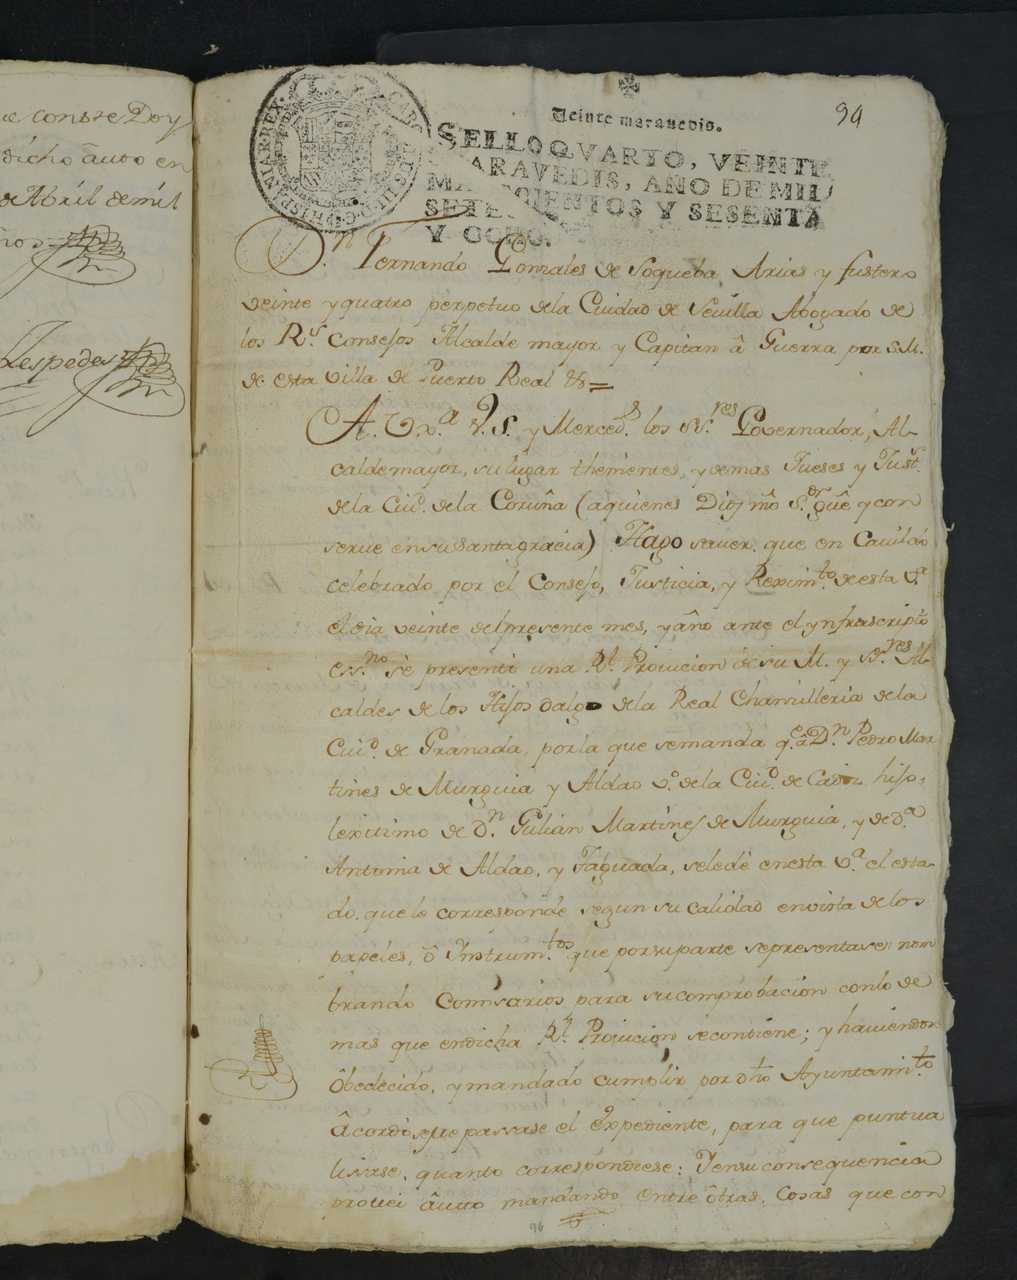 e conste Doy
dicho âuto en
de Abril de mil
ños
Zespedes
94
CAROLUS III D G HISPANIAR REX
Veinte maravedis.
SELLO QVARTO, VEINTE
MARAVEDIS, AÑO DE MIL
SETECIENTOS Y SESENTA
Y OCHO.
Dn. Fernando Gonzales de Soqueba Arias y fustero
veinte y quatro perpetuo dela Ciudad de Sevilla Abogado de
los Rs. Consejos Alcalde mayor y Capitan â Guerra por S.M.
de esta villa de Puerto Real &a =
A. V. xa. V.S. y Merceds. los SSres. Governador, Al-
calde mayor, su lugar thenientes, y demas Jueses y Justs.
dela Ciud. dela Coruña (aquienes Dios nro Sor. gûe y con
serve ensu santa gracia) Hago saver que en Cavildo
celebrado por el Consejo, Justicia, y Reximto. de esta Va
el dia veinte del presente mes, y año ante el ynfrascripto
essno. se presentô una Rl. Provicion de su M. y SSres. Al
caldes de los Hijos dalgo dela Real Chansilleria de la
Ciud. de Granada, porla que semanda qe. â Dn. Pedro Mar
tines de Murguia y Aldao vo. dela Ciud. de Cadiz hijo
lexitimo de Dn. Julian Martines de Murguia, y de Da.
Antonia de Aldao, y Taguada, selede enesta Va. el esta-
do, que le corresponde segun su calidad envista de los
papeles, ô Ynstrumtos. que porsuparte sepresentasen nom
brando Comisarios para sucomprobacion conlo de
mas que endicha Rl. Provicion secontiene; y haviendose
Obedecido, y mandado cumplir por dho Ayuntamto.
Âcordô se que passase el Expediente, para que puntua
lisase, quanto correspondiese: Yensu consequencia
provei âuto mandando entre ôtras, Cosas que con
96